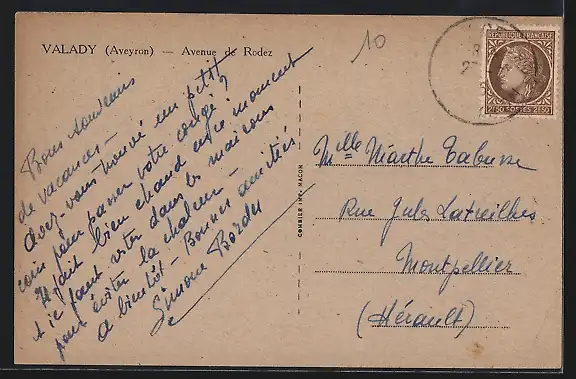 VALADY (Aveyron) — Avenue de Rodez
10
RÉPUBLIQUE FRANÇAISE
2F50 POSTES 2F50
Bons souvenirs
de vacances –
Avez-vous trouvé un petit
coin pour passer votre congé ?
Il fait bien chaud en ce moment
et il faut vite dans les maisons
pour éviter la chaleur –
A bientôt – Bonnes amitiés
Simone Bordes
COMBIER IMP. MACON
Mlle Marthe Tabusse
Rue Jules Latreilhes
Montpellier
(Hérault)